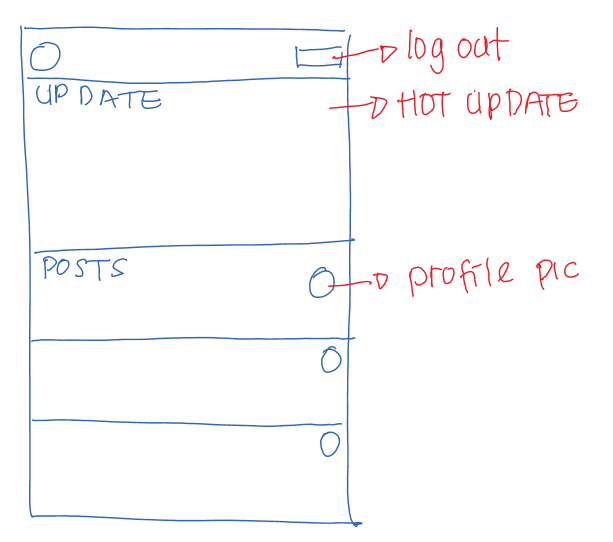 log out
UPDATE
HOT UPDATE
POSTS
profile pic